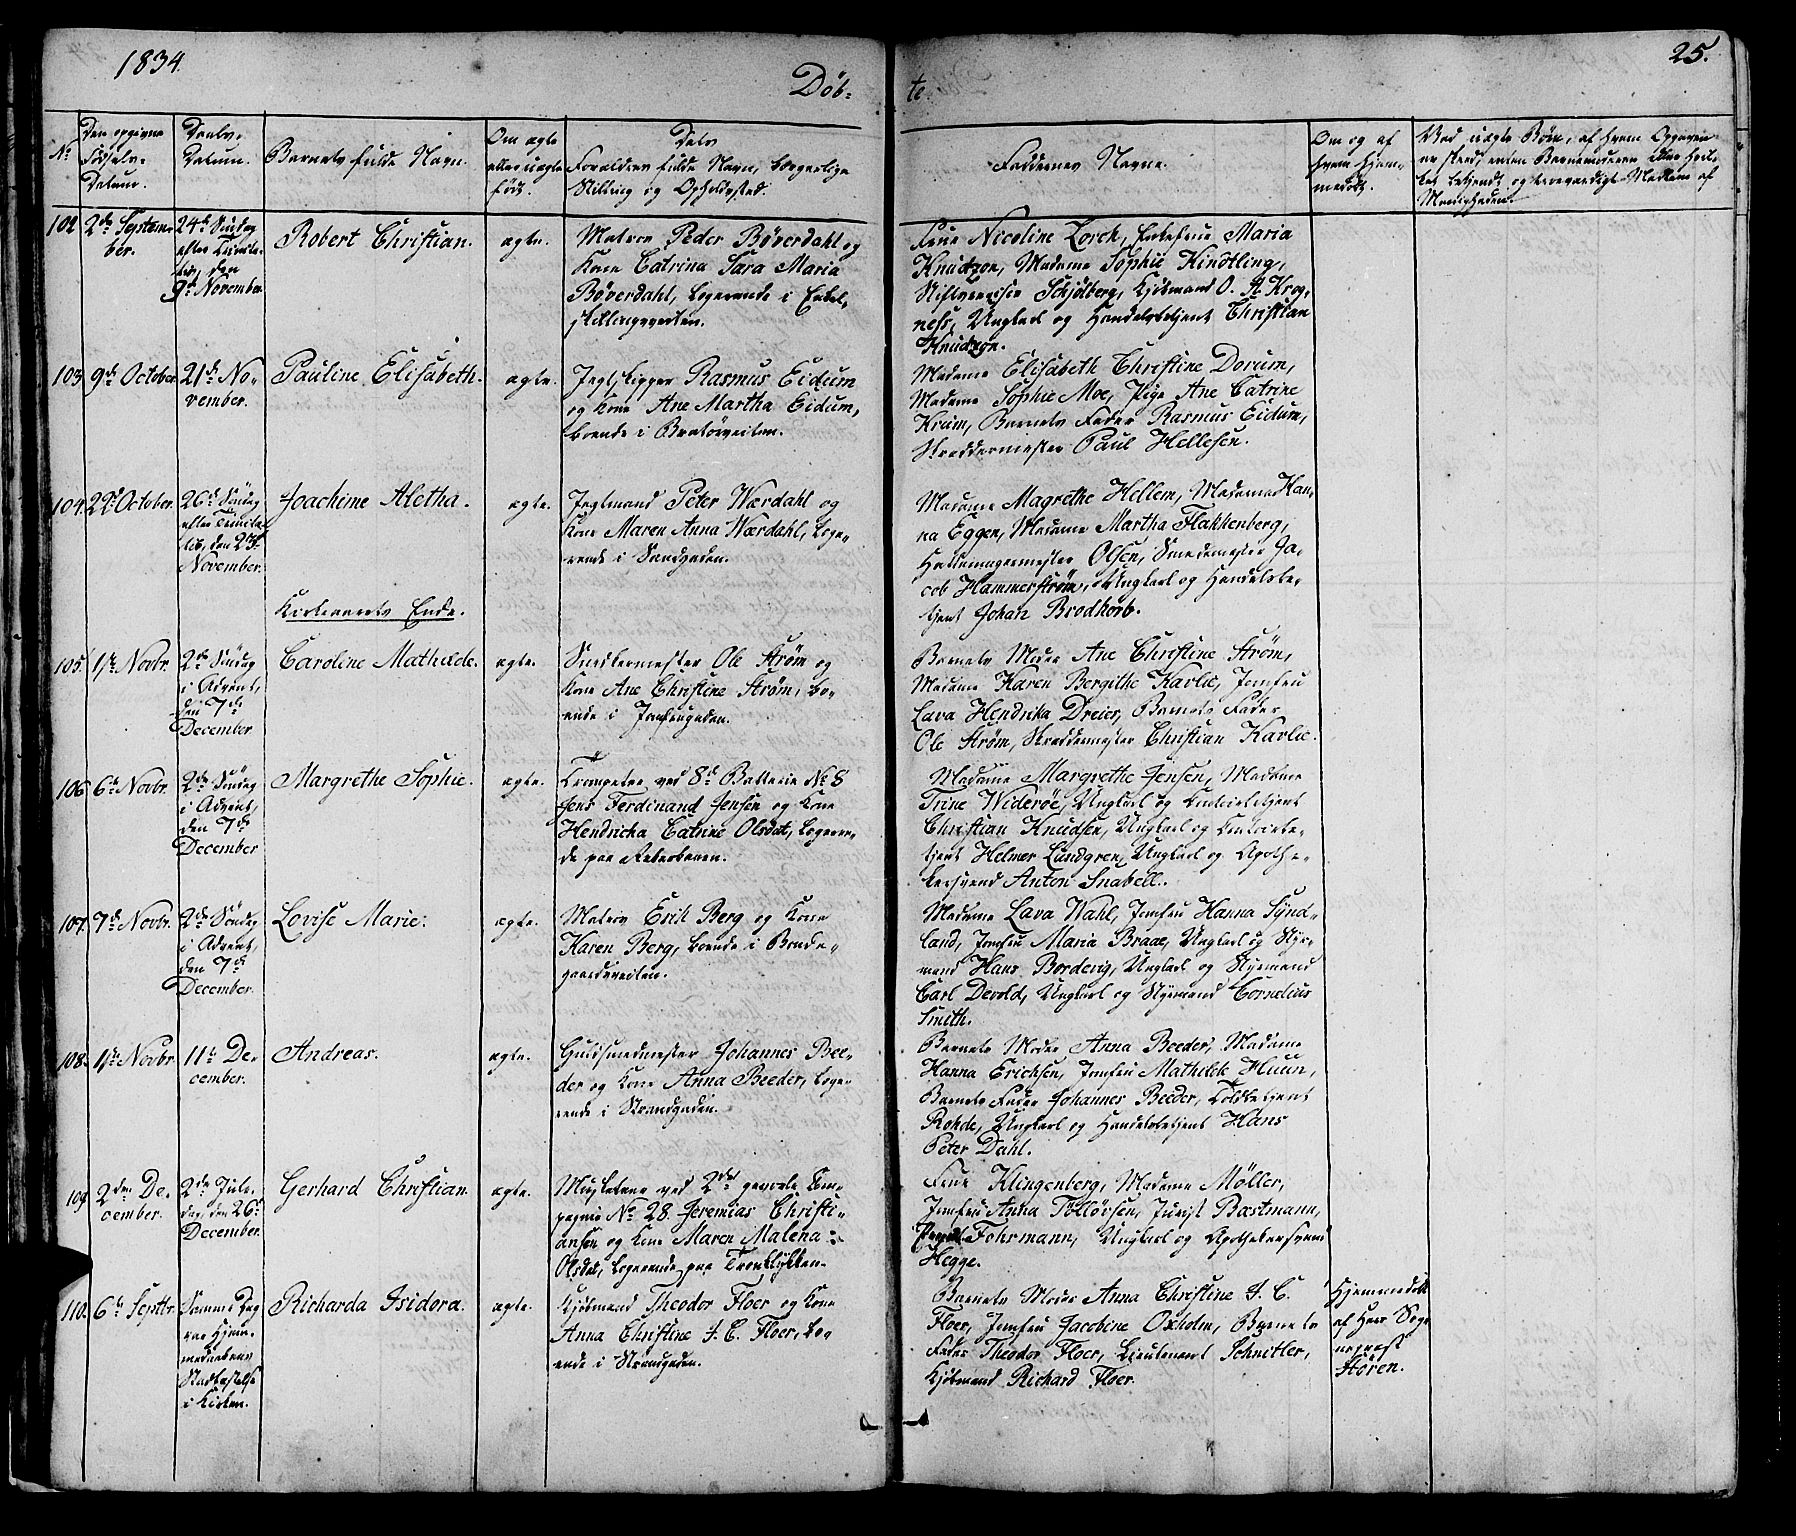 1834.
Döb-
te.
25.
No
Den opgivne Födsels-Datum.
Daabs-Datum.
Barnets fulde Navn.
Om ægte eller uægte född.
Forældres fulde Navn, borgerlige Stilling og Opholdssted.
Faddernes Navne.
Om og af hvem hjemmedöbt.
Ved uægte Börn, af hvem Opgaven er skeed, enten Barnemoderen eller hvilket bekjendt og troværdigt Medlem af Menigheden.
102
2de September.
24de Söndag
efter Trinita-
tis, den
9de November
Robert Christian.
ægte.
Matros Peder Böverdahl og
Kone Catrina Sara Maria
Böverdahl, logerende i Enkel-
skillingsveiten.
Frue Nicoline Lorck, Enkefrue Maria
Knudtzon, Madame Sophie Kindtling,
Schjölberg, Kjöbmand O. A. Krog-
ness, Ungkarl og Handelsbetjent Christian
Knudtzon.
103
9de October
21de No-
vember.
Pauline Elisabeth.
ægte.
Jegtskipper Rasmus Eidum
og Kone Ane Martha Eidum,
boende i Bratörveiten.
Madame Elisabeth Christine Dorum,
Madame Sophie Moe, Pige Ane Catrine
Krum, Barnets Fader Rasmus Eidum,
Skræddermester Paul Hellesen.
104.
22de October.
26de Söndag
efter Trinita-
tis, den 23de
November.
Joachime Aletha.
ægte.
Jegtmand Peter Wærdahl og
Kone Maren Anna Wærdahl, loge-
rende i Sandgaden.
Madame Magrethe Hellem, Madame Han-
na Eggen, Madame Martha Flakkenberg,
Hattemagermester Olsen, Smedemester Ja-
cob Hammerström, Ungkarl og Handelsbe-
tjent Johan Brodkorb.
Kirkeaarets Ende.
105.
1ste Novbr.
2de Söndag
i Advent,
den 7de
December
Caroline Mathilde.
ægte.
Snedkermester Ole Ström og
Kone Ane Christine Ström, bo-
ende i Jomfrugaden.
Barnets Moder Ane Christine Ström,
Madame Karen Bergithe Kavlie, Jomfru
Lava Hendrika Dreier, Barnets Fader
Ole Ström, Skræddermester Christian Kavlie.
106
6te Novbr.
2de Söndag
i Advent,
den 7de
December
Margrethe Sophie.
ægte.
Trompeter ved 8de Batterie No 8
Jens Ferdinand Jensen og Kone
Hendricka Catrine Olsdat, logeren-
de paa Reberbanen.
Madame Margrethe Jensen, Madame
Trine Wideröe, Ungkarl og Contoirbetjent
Christian Knudsen, Ungkarl og Contoirbe-
tjent Helmer Lundgren, Ungkarl og Apothe-
kersvend Anton Snabell.
107.
7de Novbr.
2de Söndag
i Advent,
den 7de
December.
Lovise Marie.
ægte.
Matros Erik Berg og Kone
Karen Berg, boende i Bonde-
gaardsveiten.
Madame Lava Wahl, Jomfru Hanna Synd-
land, Jomfru Maria Braae, Ungkarl og Styr-
mand Hans Bordevig, Ungkarl og Styrmand
Carl Devold, Ungkarl og Styrmand Cornelius
Smith.
108.
1ste Novbr.
11te De-
cember.
Andreas.
ægte.
Guldsmedmester Johannes Bee-
der og Kone Anna Beeder, loge-
rende i Strandgaden.
Barnets Moder Anna Beeder, Madame
Hanna Erichsen, Jomfru Mathilde Huun,
Barnets Fader Johannes Beeder, Toldbetjent
Rohde, Ungkarl og Handelsbetjent Hans
Peter Dahl.
109
2den De-
cember.
2den Jule-
dag, den 26de
December.
Gerhard Christian.
ægte.
Musketeer ved 2det gevorbne Com-
pagnie No 28. Jeremias Christi-
ansen og Kone Maren Malena
Olsdat, logerende paa Tronklykken.
Frue Klingenberg, Madame Möller,
Jomfru Anna Tollörsen, Jurist Bæstmann,
Fohrmann, Ungkarl og Apothekersvend
Hegge.
110.
6te Septbr.
Samme Dag
var Hjem-
medaabens
Stadfæstelse
i Kirken.
Richarda Isidora.
ægte.
Kjöbmand Theodor Floer og Kone
Anna Christine J. C. Floer, bo-
ende i Strandgaden.
Barnets Moder Anna Christine J. C.
Floer, Jomfru Jacobine Oxholm, Barnets
Fader Theodor Floer, Lieutenant Schnitler,
Kjöbmand Richard Floer.
Hjemmedöbt
af Herr Sog-
nepræst
Stören.